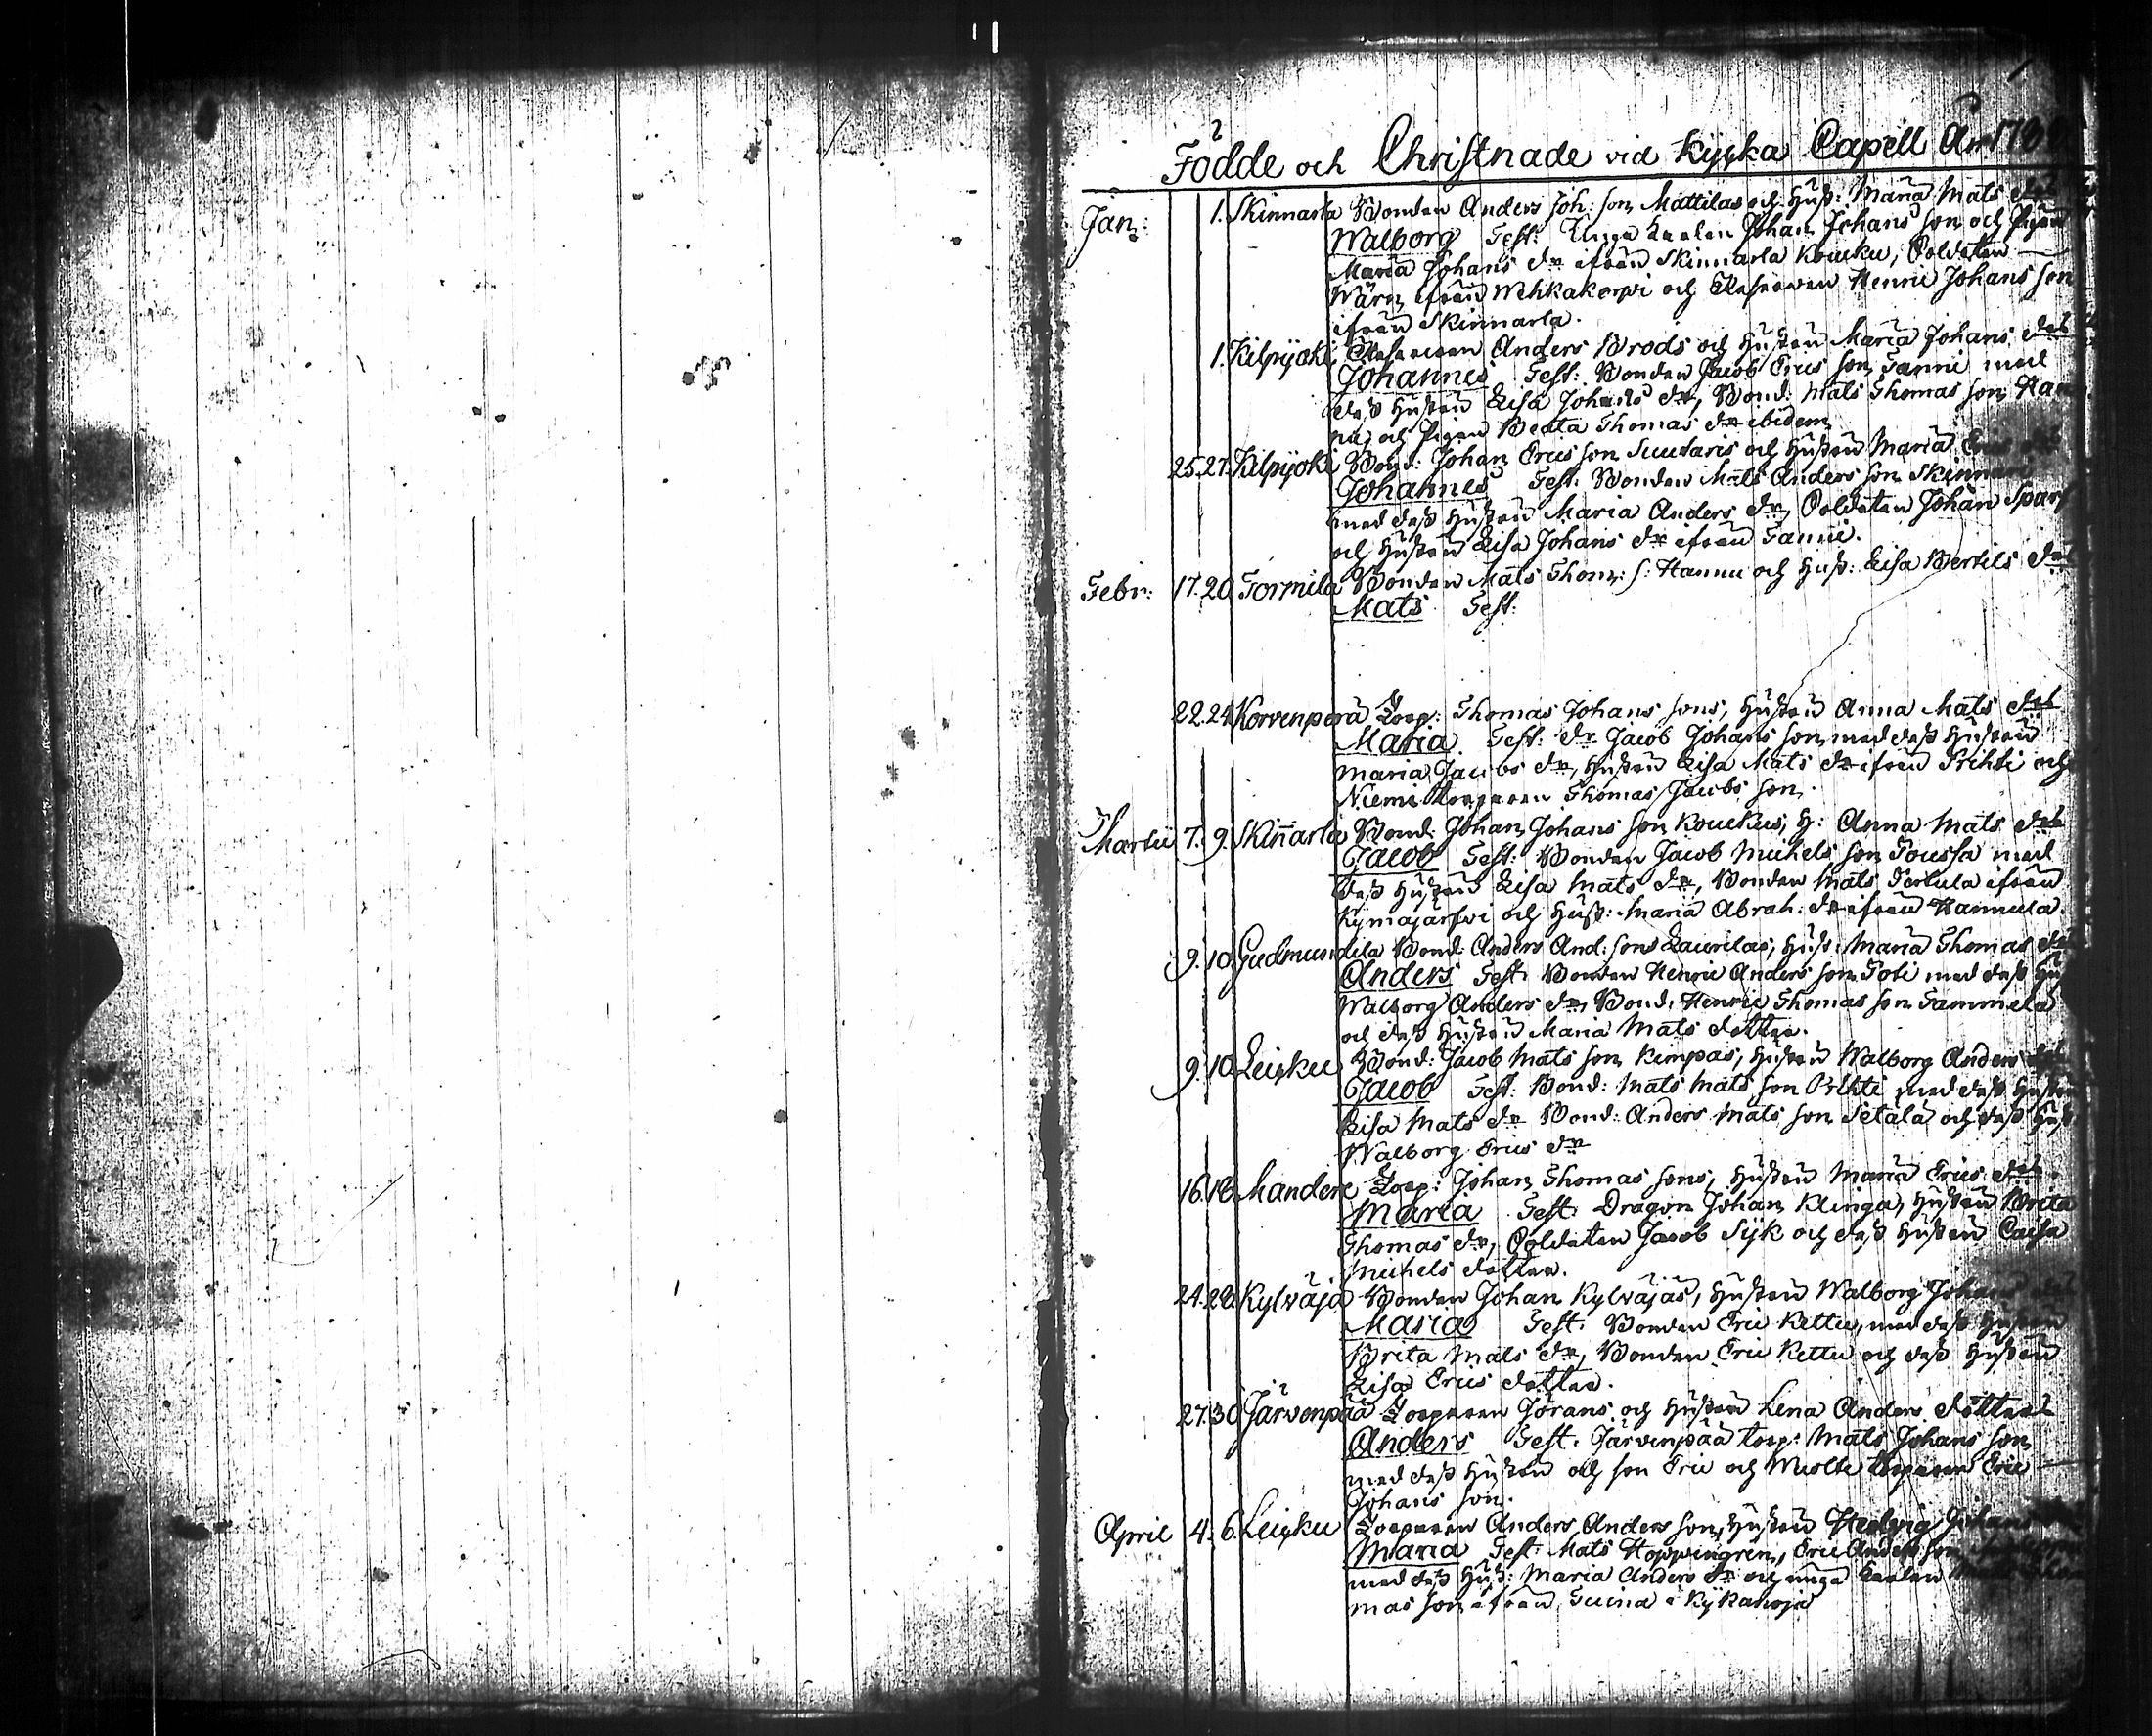 Födde och Christnade vid Kyrka Capell År 178
Jan: 1. Skinnarla Bonden Anders Joh: son Mattilas och Hust: Maria Mats dotr
Walborg Test: Unga Karlen Johan Johans son och Pigan
Maria Johans dr ifrån Skinnarla Koucku, Soldaten
Wärn ifrån Wehkakorpi och Reserven Henric Johans son
ifrån Skinnarla.
1. Kilpijoki Reserven Anders Brods och Hustrun Maria Johans dotr
Johannes Test: Bonden Jacob Erics son Tanni med
dess Hustru Lisa Johans dr, Bond: Mats Thomas son
och Pigan Beata Thomas dr ibidem
25. 27. Kilpijoki Bond: Johan Erics son Suutaris och Hustrun Maria Erics
Johannes Test: Bonden Mats Anders son
med dess Hustru Maria Anders dr, Soldaten Johan Sparf
och Hustrun Lisa Johans dr ifrån Tanni.
Febr: 17. 20 Tormila Bonden Mats Thom: s: Hannu och Hust: Lisa Bertils dotr
Mats Test:
22. 24 Korvenperä Torp: Thomas Johans sons, Hustrun Anna Mats dotr
Maria Test: dr Jacob Johans son med dess Hustru
Maria Jacobs dr, Hustrun Lisa Mats dr ifrån Prihti och
Niemi torparen Thomas Jacobs son.
Martii 7. 9. Skinnarla Bond: Johan Johans son Kouckus, H: Anna Mats dotr
Jacob Test: Bonden Jacob Michels son Toussa med
dess Hustru Lisa Mats dr, Bonden Mats Pertula ifrån
Kymajärfvi och Hust: Maria Abrah: dr ifrån Hannula.
9. 10 Gudmundila Bond: Anders And: sons Laurilas, Hust: Maria Thomas dotr
Anders Test: Bonden Henric Anders son Toti med dess Hu
Walborg Anders dr, Bond: Henric Thomas son Tammela
och dess Hustru Maria Mats dotter.
9. 10 Leisku Bond: Jacob Mats son Kimpas, Hustrun Walborg Anders
Jacob Test: Bond: Mats Mats son Prihti med dess Hustru
Lisa Mats dr Bond: Anders Mats son Setälä och dess Hust
Walborg Erics dr
16. 18. Mandere Torp: Johan Thomas sons, Hustrun Maria Erics dotr
Maria Test: Dragon Johan Klinga, Hustrun Brita
Thomas dr, Soldaten Jacob Sijk och dess Hustru Caisa
Michels dotter.
24. 28. Kylväjä Bonden Johan Kylväjäs, Hustrun Walborg Johans
Maria Test: Bonden Eric Kettu, med dess Hustru
Brita Mats dr, Bonden Eric Kettu och dess Hustru
Lisa Erics dotter.
27. 30 Järvenpää Torparen Görans och Hustrun Lena Anders dotters
Anders Test: Järvenpää torp: Mats Johans son
med dess Hustru och son Eric och torparen Eric
Johans son.
April 4. 6. Leisku Torparen Anders Anders son, Hustrun Hedvig Johans
Maria Test: Mats Hoppingren, Eric Anders son
med dess Hust: Maria Anders dr och unga Karlen
mas son ifrån Tuina i Kykänoja